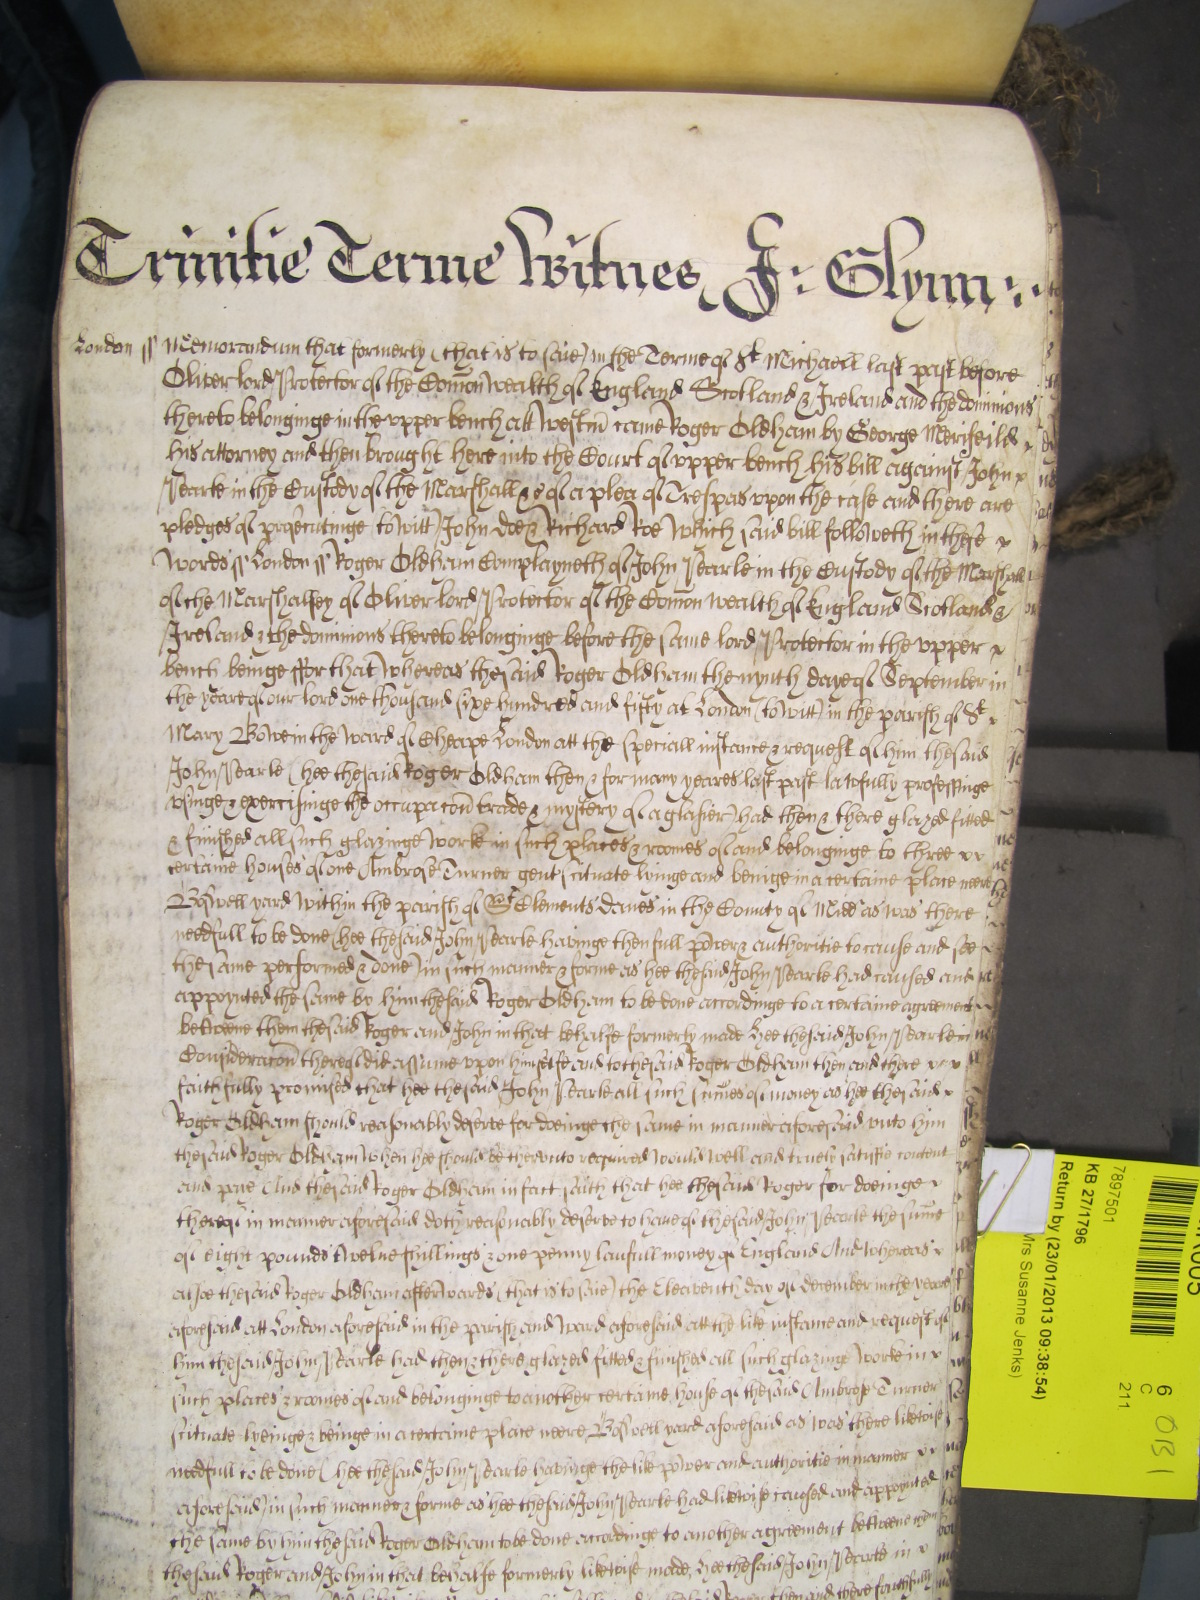 Trinitie Terme Witnes J: Glynn:
London ss Memorandum that formerly (that is to saie) in the Terme of St Michaell last past before
Oliver lord Protector of the Comon Wealth of England Scotland & Ireland and the dominions
thereto belonginge in the upper bench att Westm came Roger Oldham by George Merifeild
his attorney and then brought here into the Court of upper bench his bill against John
Searle in the Custody of the Marshall &c of a plea of Trespas upon the case and there are
pledges of prosecutinge to witt John doe & Richard Roe Which said bill followeth in these
Words ss London ss Roger Oldham Complayneth of John Searle in the Custody of the Marshall
of the Marshalsey of Oliver lord Protector of the Comon Wealth of England Scotland &
Ireland & the dominions thereto belonginge before the same lord Protector in the upper
bench beinge ffor that Whereas the said Roger Oldham the nynth daye of September in
the yeare of our lord one thousand sixe hundred and fifty at London (to witt) in the parish of St
Mary Bowe in the Ward of Cheape London att the speciall instance & request of him the said
John Searle (hee the said Roger Oldham then & for many yeares last past lawfully professinge
usinge & exercisinge the occupacon trade & mystery of a glasier) had then & there glazed fitted
& finished all such glazinge worke in such places & roomes of and belonginge to three
certaine houses of one Ambrose Turner gent scituate lyinge and beinge in a certaine place neere
Boswell yard Within the parish of St Clements danes in the County of Midd as was there
needfull to be done (hee the said John Searle havinge then full power & authoritie to cause and see
the same performed & done) in such manner & forme as hee the said John Searle had caused and
appoynted the same by him the said Roger Oldham to be done accordinge to a certaine agreement
betweene them the said Roger and John in that behalfe formerly made hee the said John Searle in
Consideracon thereof did assume upon himselfe and to the said Roger Oldham then and there
faithfully promised that hee the said John Searle all such sumes of money as hee the said
Roger Oldham should reasonably deserve for doeinge the same in manner aforesaid unto him
the said Roger Oldham When hee should be thereunto required would well and truely satisfie content
and paye And the said Roger Oldham in fact saith that hee the said Roger for doeinge
thereof in manner aforesaid doth reasonably deserve to have of the said John Searle the sume
of eight pounds twelve shillings & one penny lawfull money of England And whereas
alsoe the said Roger Oldham afterwards (that is to saie) the Eleaventh day of december in the yeare
aforesaid att London aforesaid in the parish and Ward aforesaid att the like instance and request of
him the said John Searle had then & there glazed fitted & finished all such glazinge worke in
such places & roomes of and belonginge to another certaine house of the said Ambrose Turner
scituate lyeinge & beinge in a certaine place neere Boswell yard aforesaid as was there likewise
needfull to be done (hee the said John Searle havinge the like power and authoritie in manner
aforesaid) in such manner & forme as hee the said John Searle had likewise caused and appoynted
the same by him the said Roger Oldham to be done accordinge to another agreement betweene them
the said Roger and John in that behalfe formerly likewise made hee the said John Searle in
then and there faithfully
7897501
KB 27/1796
Return by (23/01/2013 09:38:54)
Mrs Susanne Jenks)
6
C
211